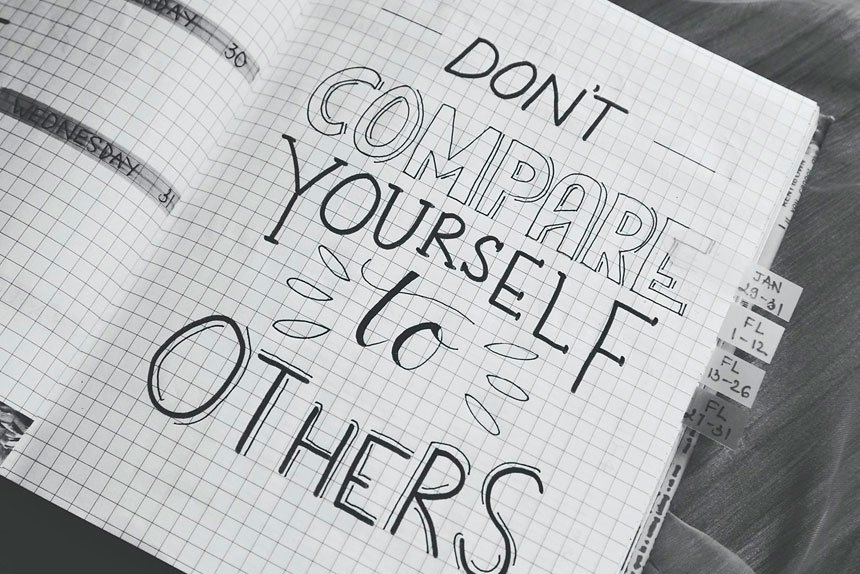 30
WEDNESDAY 31
DON'T
COMPARE
YOURSELF
to
OTHERS
JAN
29-31
FL
1-12
FL
13-26
FL
27-31